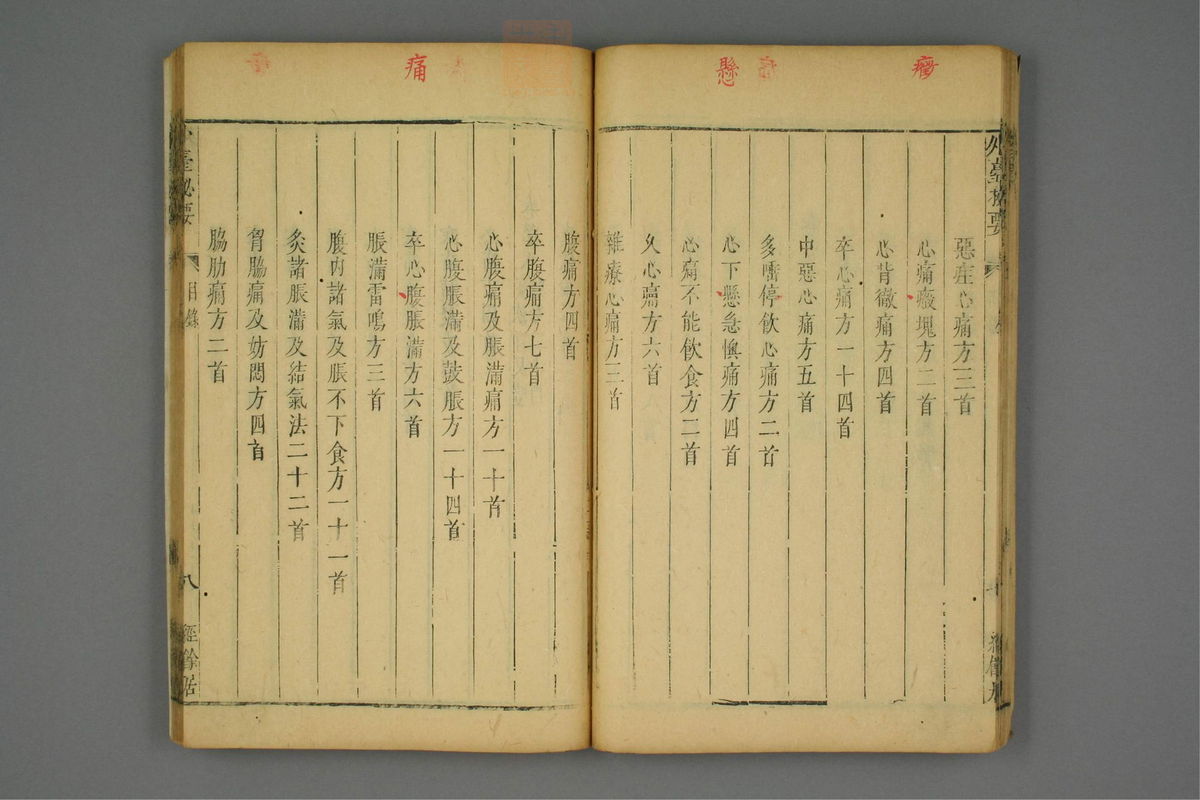 癆
懸
惡疰心痛方三首
心痛癥塊方二首
心背徹痛方四首
卒心痛方一十四首
中惡心痛方五首
多唾停飲心痛方二首
心下懸急懊痛方四首
心痛不能飲食方二首
久心痛方六首
雜療心痛方三首
外臺秘要
痛
腹痛方四首
卒腹痛方七首
心腹痛及脹滿痛方一十首
心腹脹滿及鼓脹方一十四首
卒心腹脹滿方六首
脹滿雷鳴方三首
腹內諸氣及脹不下食方一十一首
灸諸脹滿及結氣法二十二首
胷脇痛及妨悶方四首
脇肋痛方二首
臺秘要
目錄
八
經餘居